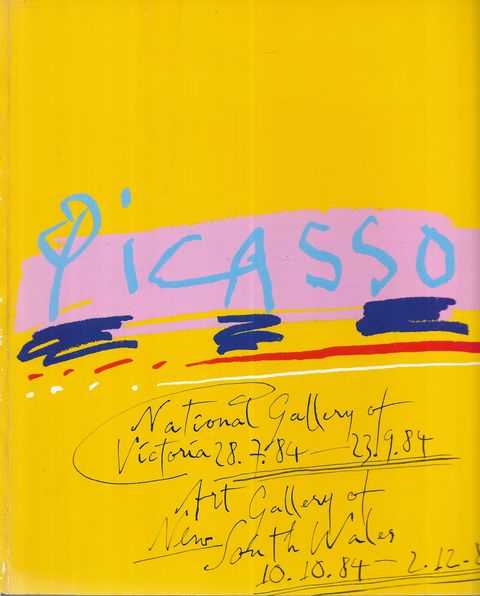 PiCASSO
National Gallery of
Victoria 28.7.84 — 23.9.84
Art Gallery of
New South Wales
10.10.84 — 2.12.8